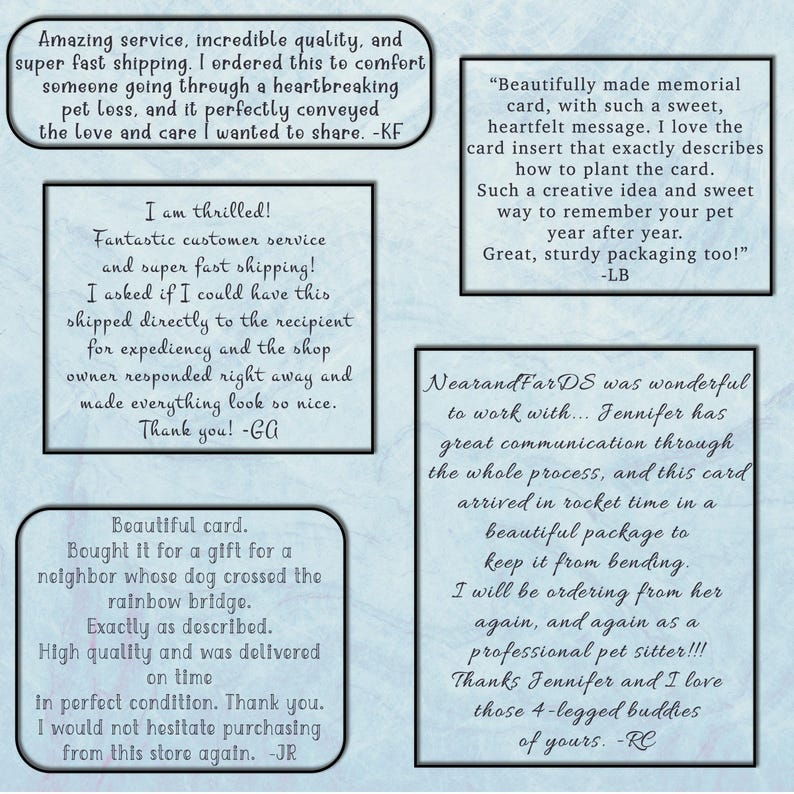 Amazing service, incredible quality, and
super fast shipping. I ordered this to comfort
someone going through a heartbreaking
pet loss, and it perfectly conveyed
the love and care I wanted to share. -KF
“Beautifully made memorial
card, with such a sweet,
heartfelt message. I love the
card insert that exactly describes
how to plant the card.
Such a creative idea and sweet
way to remember your pet
year after year.
Great, sturdy packaging too!”
-LB
I am thrilled!
Fantastic customer service
and super fast shipping!
I asked if I could have this
shipped directly to the recipient
for expediency and the shop
owner responded right away and
made everything look so nice.
Thank you! -GA
NearandFarDS was wonderful
to work with... Jennifer has
great communication through
the whole process, and this card
arrived in rocket time in a
beautiful package to
keep it from bending.
I will be ordering from her
again, and again as a
professional pet sitter!!!
Thanks Jennifer and I love
those 4-legged buddies
of yours. -RC
Beautiful card.
Bought it for a gift for a
neighbor whose dog crossed the
rainbow bridge.
Exactly as described.
High quality and was delivered
on time
in perfect condition. Thank you.
I would not hesitate purchasing
from this store again. -JR